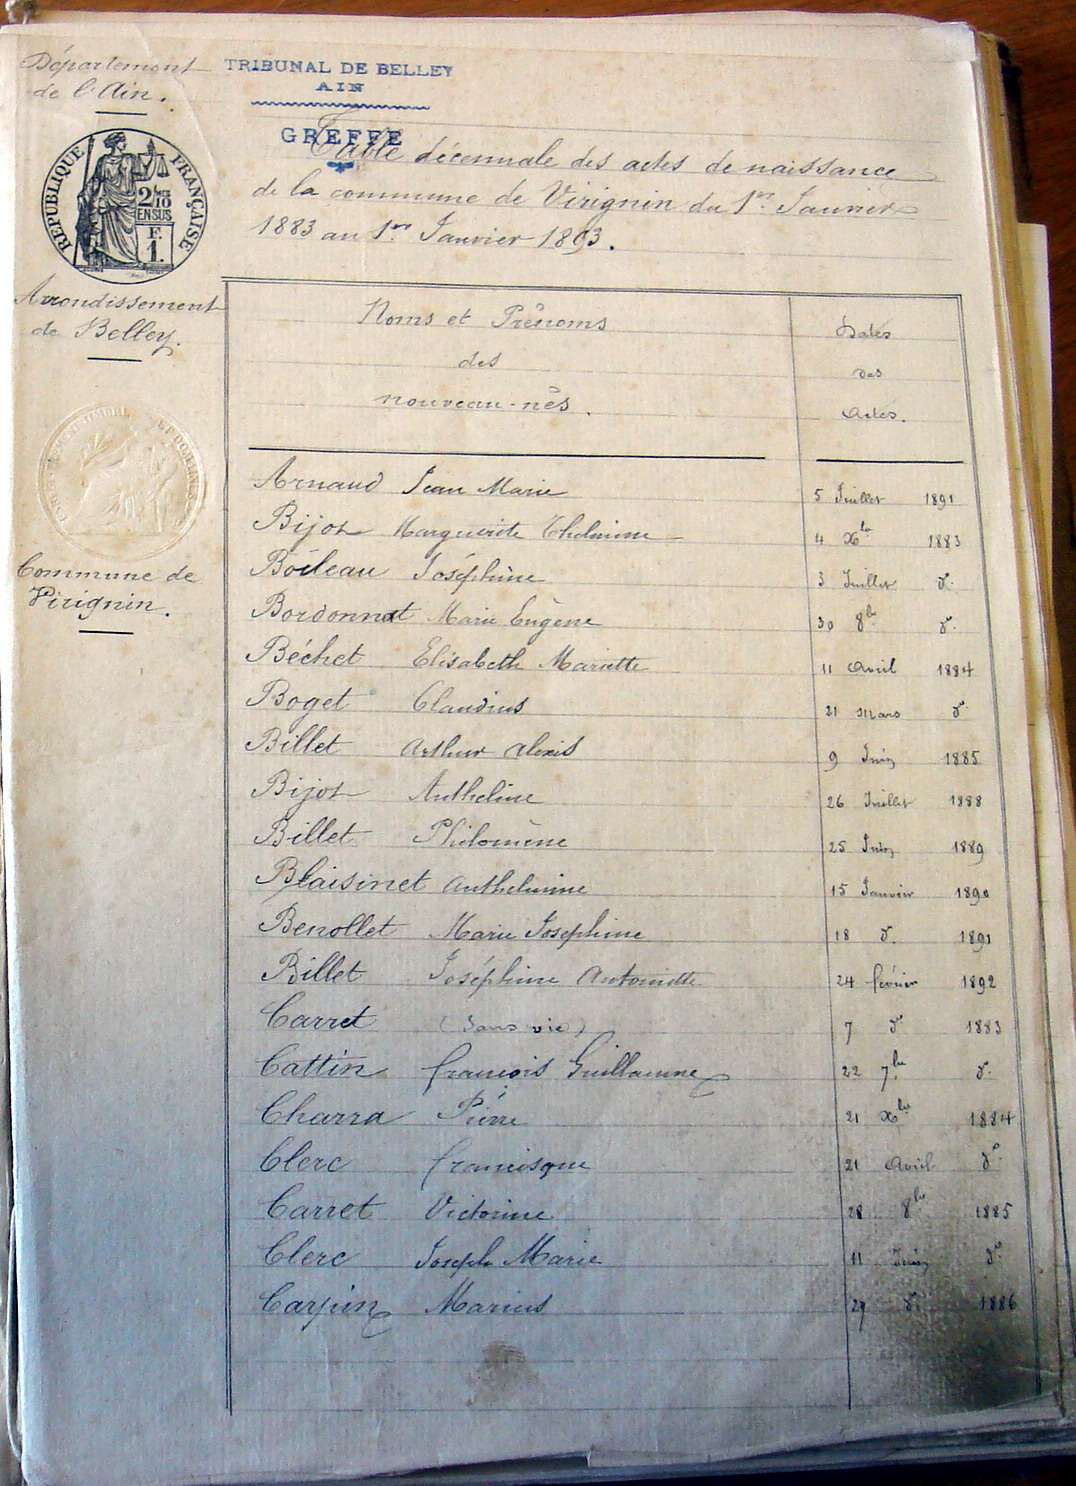 Département
de l'Ain.
TRIBUNAL DE BELLEY
AIN
GREFFE
RÉPUBLIQUE FRANÇAISE
2/10
EN SUS
F.
1.
Table décennale des actes de naissance
de la commune de Virignin du 1er Janvier
1883 au 1er Janvier 1893.
Arrondissement
de Belley.
Commune de
Virignin.
Noms et Prénoms
des
nouveau-nés.
Dates
des
Actes.
Arnaud Jean Marie 5 Juillet 1891
Bijot Marguerite Thelmine 4 Xbre 1883
Boileau Joséphine 3 Juillet do
Bordonnat Marie Eugène 30 8bre do
Béchet Elisabeth Mariette 11 Avril 1884
Boget Claudius 21 Mars do
Billet Arthur Alexis 9 Juin 1885
Bijot Antheline 26 Juillet 1888
Billet Philomène 25 Juin 1889
Blaisinet Anthelmine 15 Janvier 1890
Benollet Marie Joséphine 18 do 1891
Billet Joséphine Antoinette 24 février 1892
Carret (Sans vie) 7 do 1883
Cattin françois Guillaume 22 7bre do
Charra Pierre 21 Xbre 1884
Clerc francisque 21 Avril do
Carret Victorine 28 8bre 1885
Clerc Joseph Marie 11 Juin do
Carpin Marius 29 do 1886